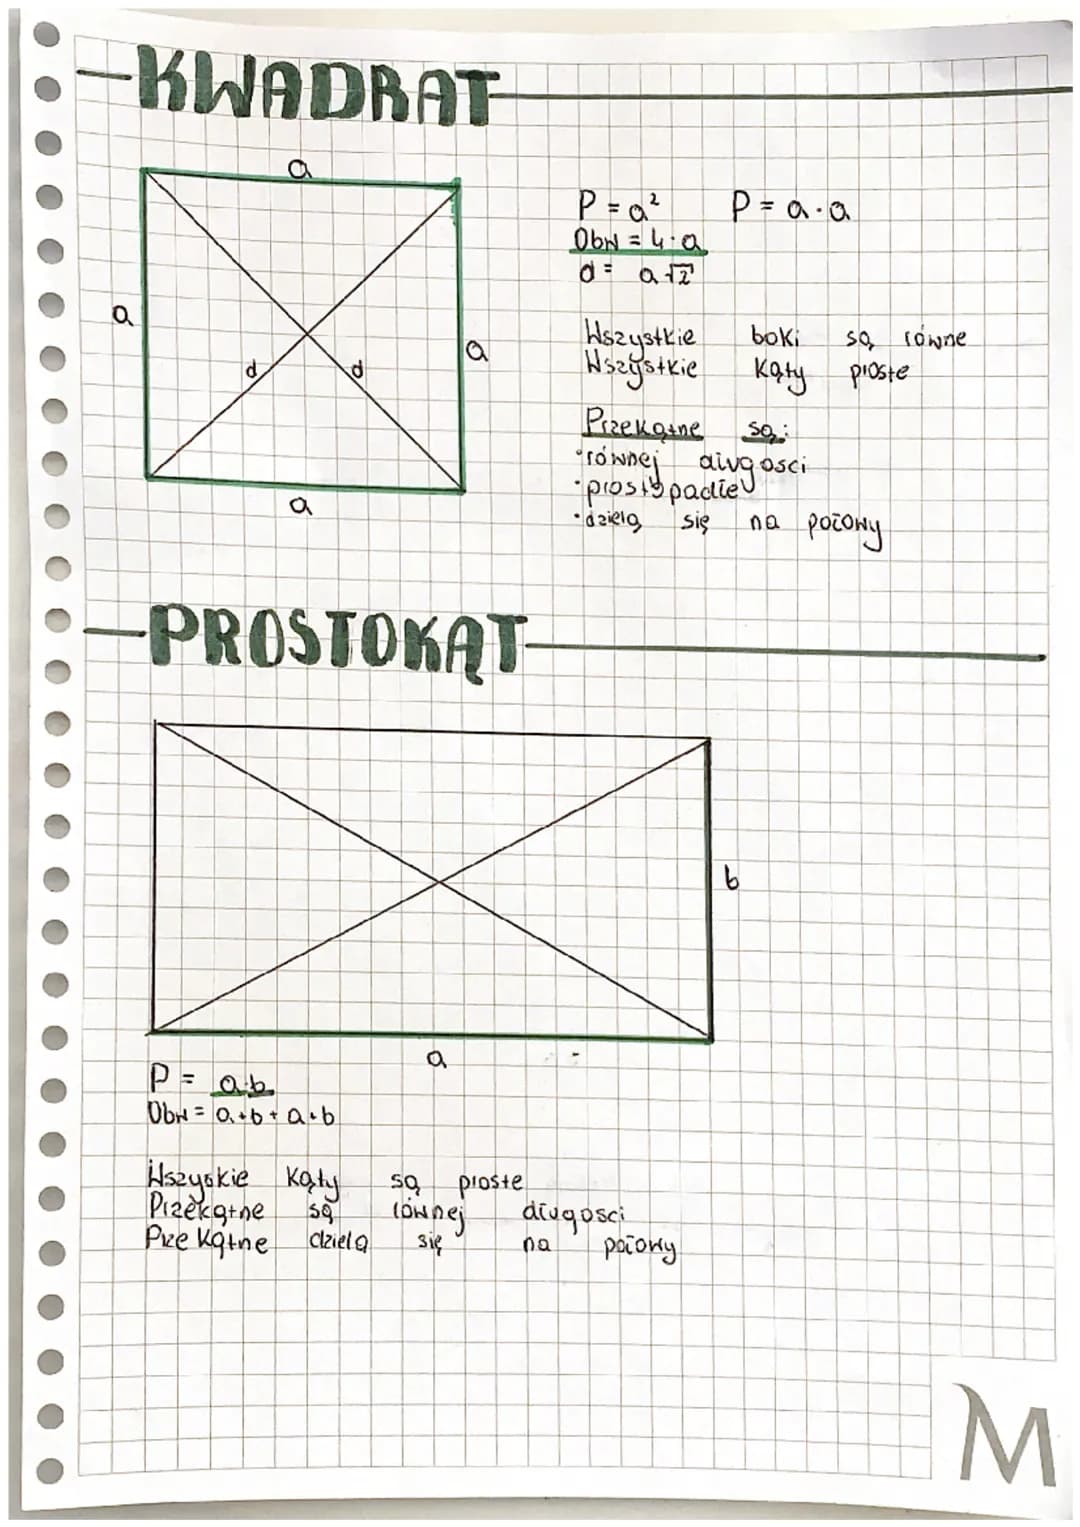 KWADRAT
a
P = a² P = a·a
Obw = 4·a
d = a√2
a
a
d
d
Wszystkie boki są równe
Wszystkie kąty proste
Przekątne są:
•równej długosci
•prostopadłe
•dzielą się na połowy
a
PROSTOKĄT
b
a
P = a·b
Obw = a+b+a+b
Wszyskie kąty są proste
Przekątne są równej długosci
Prze kątne dzielą się na połowy
M